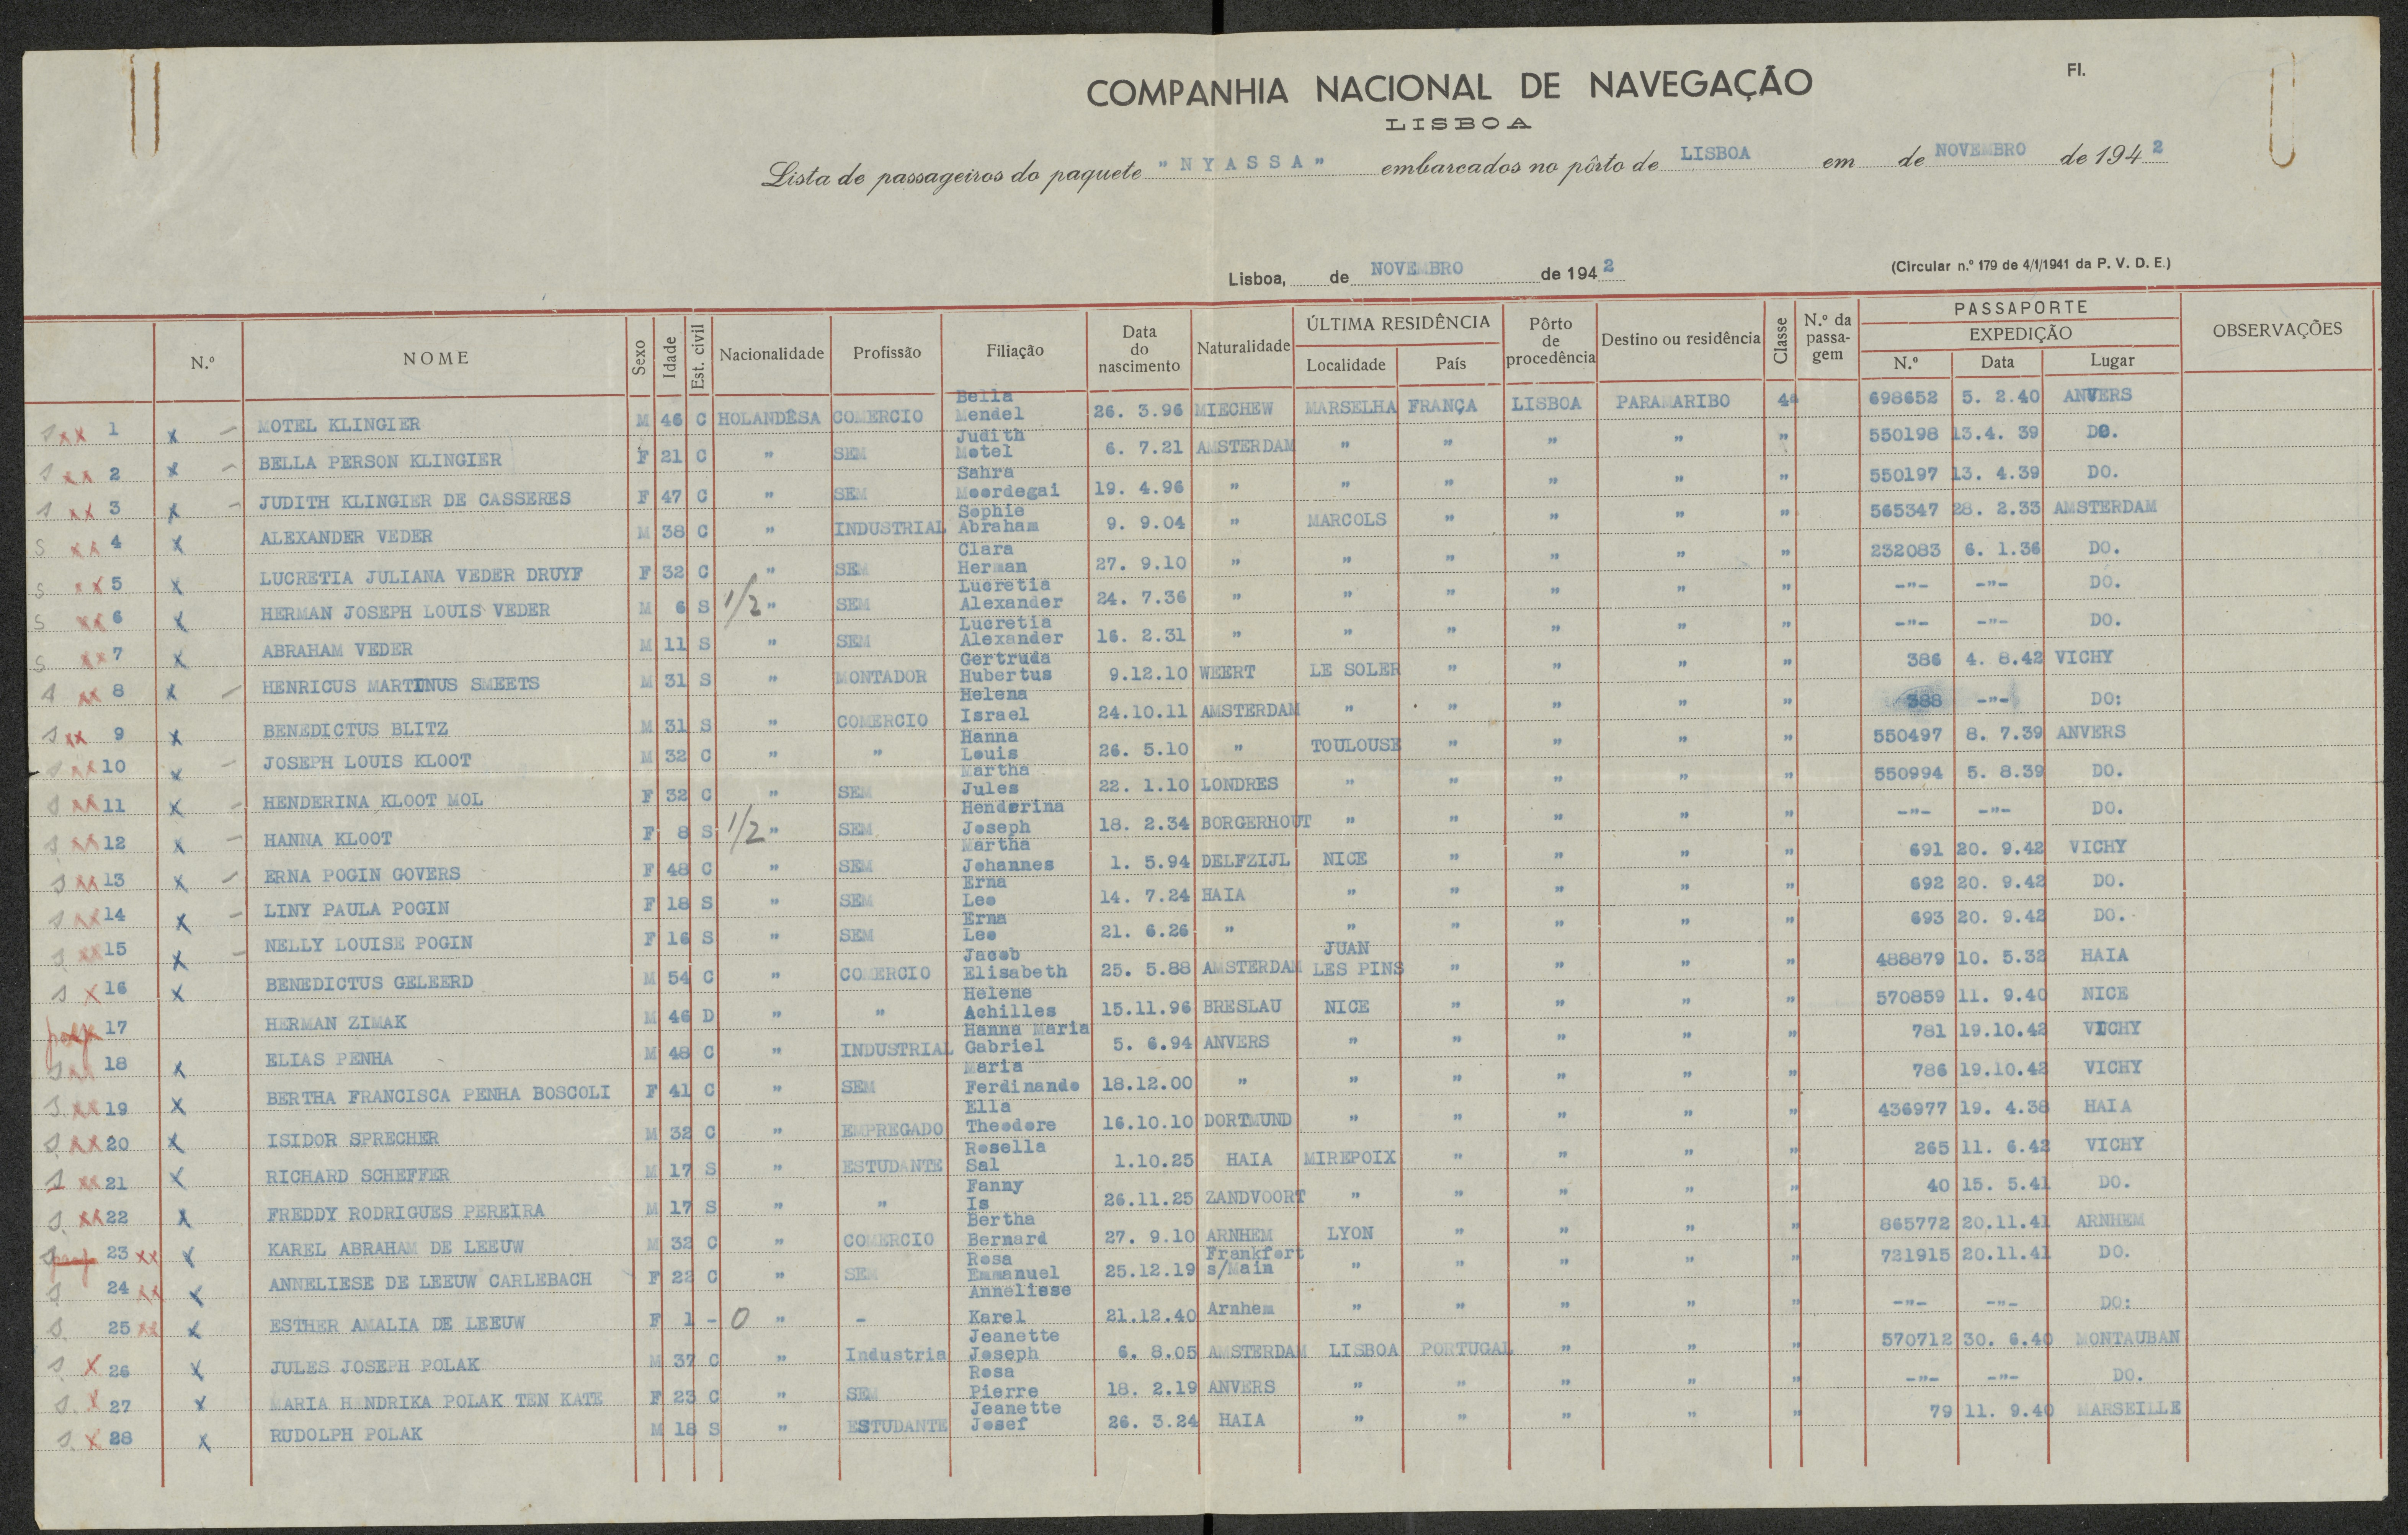 COMPANHIA NACIONAL DE NAVEGAÇÃO
Fl.
LISBOA
Lista de passageiros do paquete "NYASSA" embarcados no pôrto de LISBOA em de NOVEMBRO de 1942
Lisboa, de NOVEMBRO de 1942
(Circular n.º 179 de 4/1/1941 da P. V. D. E.)
N.º NOME Sexo Idade Est. civil Nacionalidade Profissão Filiação Data do nascimento Naturalidade ÚLTIMA RESIDÊNCIA Localidade País Pôrto de procedência Destino ou residência Classe N.º da passagem PASSAPORTE EXPEDIÇÃO N.º Data Lugar OBSERVAÇÕES
s xx 1 x - MOTEL KLINGIER M 46 C HOLANDÊSA COMERCIO Bella Mendel 26. 3.96 MIECHEW MARSELHA FRANÇA LISBOA PARAMARIBO 4ª 698652 5. 2.40 ANVERS
s xx 2 x - BELLA PERSON KLINGIER F 21 C " SEM Judith Motel 6. 7.21 AMSTERDAM " " " " " 550198 13.4. 39 DO.
s xx 3 x - JUDITH KLINGIER DE CASSERES F 47 C " SEM Sahra Moordegai 19. 4.96 " " " " " " 550197 13. 4.39 DO.
s xx 4 x ALEXANDER VEDER M 38 C " INDUSTRIAL Sophie Abraham 9. 9.04 " MARCOLS " " " " 565347 28. 2.33 AMSTERDAM
s xx 5 x LUCRETIA JULIANA VEDER DRUYF F 32 C " SEM Clara Herman 27. 9.10 " " " " " " 232083 6. 1.36 DO.
s xx 6 x HERMAN JOSEPH LOUIS VEDER M 6 S 1/2 " SEM Lucretia Alexander 24. 7.36 " " " " " " -"- -"- DO.
s xx 7 x ABRAHAM VEDER M 11 S " SEM Lucretia Alexander 16. 2.31 " " " " " " -"- -"- DO.
s xx 8 x - HENRICUS MARTINUS SMEETS M 31 S " MONTADOR Gertruda Hubertus 9.12.10 WEERT LE SOLER " " " " 386 4. 8.42 VICHY
s xx 9 x BENEDICTUS BLITZ M 31 S " COMERCIO Helena Israel 24.10.11 AMSTERDAM " " " " " 388 -"- DO:
s xx 10 x - JOSEPH LOUIS KLOOT M 32 C " " Hanna Louis 26. 5.10 " TOULOUSE " " " " 550497 8. 7.39 ANVERS
s xx 11 x - HENDERINA KLOOT MOL F 32 C " SEM Martha Jules 22. 1.10 LONDRES " " " " " 550994 5. 8.39 DO.
s xx 12 x - HANNA KLOOT F 8 S 1/2 " SEM Henderina Joseph 18. 2.34 BORGERHOUT " " " " " -"- -"- DO.
s xx 13 x - ERNA POGIN GOVERS F 48 C " SEM Martha Johannes 1. 5.94 DELFZIJL NICE " " " " 691 20. 9.42 VICHY
s xx 14 x - LINY PAULA POGIN F 18 S " SEM Erna Leo 14. 7.24 HAIA " " " " " 692 20. 9.42 DO.
s xx 15 x - NELLY LOUISE POGIN F 16 S " SEM Erna Leo 21. 6.26 " " " " " " 693 20. 9.42 DO.
s x 16 x BENEDICTUS GELEERD M 54 C " COMERCIO Jacob Elisabeth 25. 5.88 AMSTERDAM JUAN LES PINS " " " " 488879 10. 5.32 HAIA
17 HERMAN ZIMAK M 46 D " " Helene Achilles 15.11.96 BRESLAU NICE " " " " 570859 11. 9.40 NICE
s xx 18 x ELIAS PENHA M 48 C " INDUSTRIAL Hanna Maria Gabriel 5. 6.94 ANVERS " " " " " 781 19.10.42 VICHY
s xx 19 x BERTHA FRANCISCA PENHA BOSCOLI F 41 C " SEM Maria Ferdinando 18.12.00 " " " " " " 786 19.10.42 VICHY
s xx 20 x ISIDOR SPRECHER M 32 C " EMPREGADO Ella Theodore 16.10.10 DORTMUND " " " " " 436977 19. 4.38 HAIA
s xx 21 x RICHARD SCHEFFER M 17 S " ESTUDANTE Rosella Sal 1.10.25 HAIA MIREPOIX " " " " 265 11. 6.42 VICHY
s xx 22 x FREDDY RODRIGUES PEREIRA M 17 S " " Fanny Is 26.11.25 ZANDVOORT " " " " " 40 15. 5.41 DO.
s 23 xx x KAREL ABRAHAM DE LEEUW M 32 C " COMERCIO Bertha Bernard 27. 9.10 ARNHEM LYON " " " " 865772 20.11.41 ARNHEM
s 24 xx x ANNELIESE DE LEEUW CARLEBACH F 22 C " SEM Rosa Emmanuel 25.12.19 Frankfort s/Main " " " " " 721915 20.11.41 DO.
s 25 xx x ESTHER AMALIA DE LEEUW F 1 - 0 " - Anneliese Karel 21.12.40 Arnhem " " " " " -"- -"- DO:
s x 26 x JULES JOSEPH POLAK M 37 C " Industria Jeanette Joseph 6. 8.05 AMSTERDAM LISBOA PORTUGAL " " " 570712 30. 6.40 MONTAUBAN
s x 27 x MARIA HENDRIKA POLAK TEN KATE F 23 C " SEM Rosa Pierre 18. 2.19 ANVERS " " " " " -"- -"- DO.
s x 28 x RUDOLPH POLAK M 18 S " ESTUDANTE Jeanette Josef 26. 3.24 HAIA " " " " " 79 11. 9.40 MARSEILLE